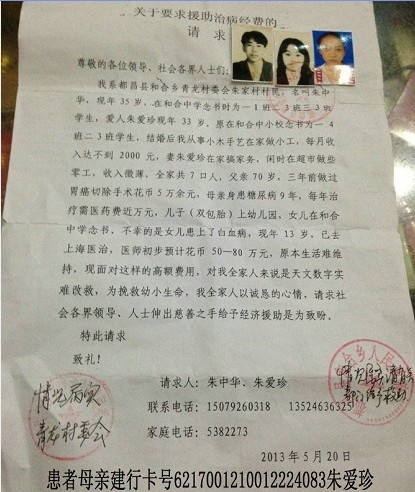 关于要求援助治病经费的
请 求
尊敬的各位领导、社会各界人士们：
我系都昌县和合乡青龙村委会朱家村村民，名叫朱中
华，现年 35 岁，在和合中学念书时为一 1 班二 3 班三 3 班
学生，爱人朱爱珍现年 33 岁，原在和合中小校念书为一 4
班二 3 班学生，结婚后我从事小木手艺在家做小工，每月收
入达不到 2000 元，妻朱爱珍在家搞家务，闲时在超市做些
零工，收入微薄，全家共 7 口人，父余 70 岁，三年前做过
胃癌切除手术花币 5 万余元，母亲身患糖尿病 9 年，每年治
疗需医药费近万元，儿子（双包胎）上幼儿园，女儿在和合
中学念书，不幸的是女儿患上了白血病，现年 13 岁，已去
上海医治，医师初步预计花币 50—80 万元，原本生活难维
持，现面对这样的高额费用，对我全家人来说是天文数字实
难改救，为挽救幼小生命，我全家人以诚恳的心情，请求社
会各界领导、人士伸出慈善之手给予经济援助是为致盼。
特此请求
致礼！
请求人：朱中华、朱爱珍
联系电话：15079260318 13524636325
家庭电话：5382273
2013 年 5 月 20 日
情况属实
青龙村委会
乡人民
情况属实
患者母亲建行卡号6217001210012224083朱爱珍